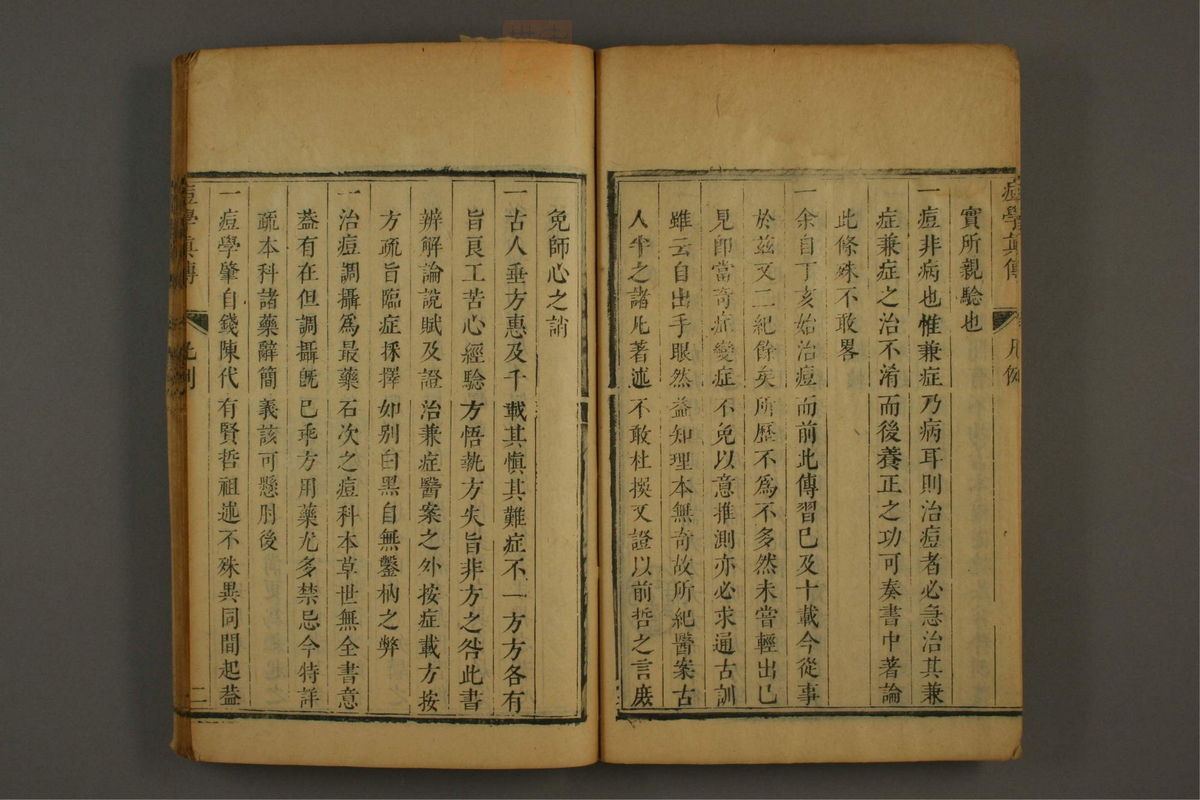 痘學真傳
凡例
實所親驗也
一痘非病也惟兼症乃病耳則治痘者必急治其兼
症兼症之治不淆而後養正之功可奏書中著論
此條殊不敢畧
一余自丁亥始治痘而前此傳習已及十載今從事
於兹又二紀餘矣所歷不為不多然未嘗輕出己
見卽當奇症變症不免以意推測亦必求通古訓
雖云自出手眼然益知理本無奇故所紀醫案古
人半之諸凡著述不敢杜撰又證以前哲之言庻
免師心之誚
一古人垂方惠及千載其慎其難症不一方方各有
旨良工苦心經驗方悟執方失旨非方之咎此書
辨解論說賦及證治兼症醫案之外按症載方按
方疏旨臨症採擇如别白黑自無鑿枘之弊
一治痘調攝為最藥石次之痘科本草世無全書意
葢有在但調攝既已乖方用藥尤多禁忌今特詳
疏本科諸藥辭簡義該可懸肘後
一痘學肇自錢陳代有賢哲祖述不殊異同間起葢
痘學真傳
凡例
二